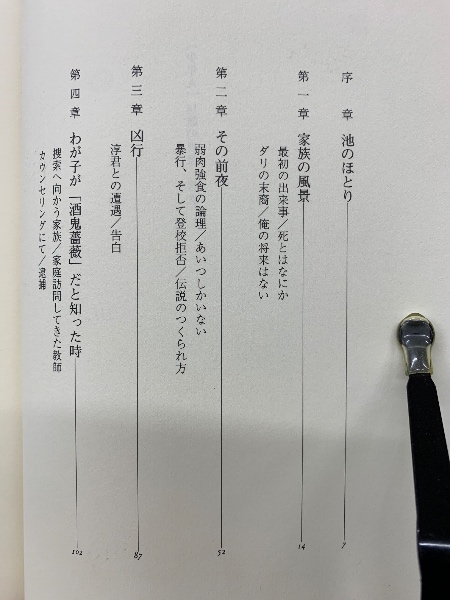 序章 池のほとり 7
第一章 家族の風景 14
最初の出来事/死とはなにか
ダリの末裔/俺の将来はない
第二章 その前夜 52
弱肉強食の論理/あいつしかいない
暴行、そして登校拒否/伝説のつくられ方
第三章 凶行 87
淳君との遭遇/告白
第四章 わが子が「酒鬼薔薇」だと知った時 102
捜索へ向かう家族/家庭訪問してきた教師
カウンセリングにて/逮捕